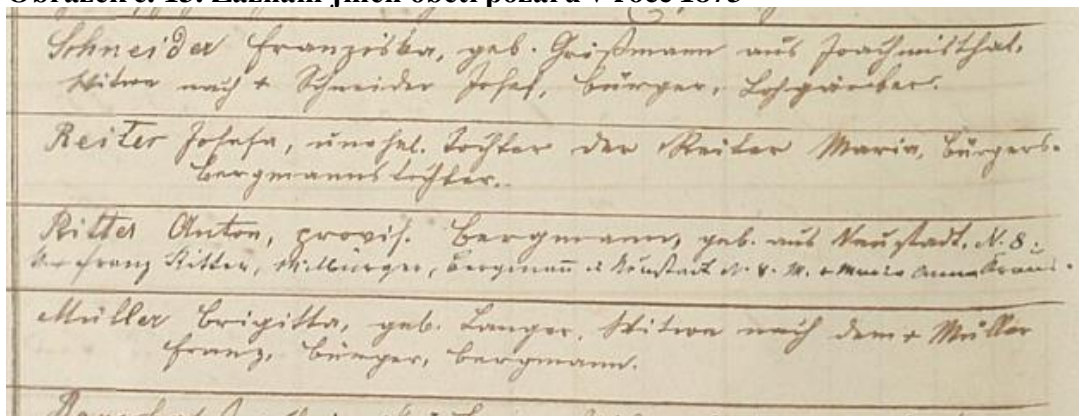 Obrázek č. 13: Záznam jmen obětí požáru v roce 1873
Schneider Franziska, geb. Grißmann aus Joachimsthal.
Witwe nach + Schneider Josef, Bürger, Lohgärber.
Reiter Josefa, unehel. Tochter der Reiter Maria, Bürgers-
Bergmannstochter.
Ritter Anton, provis. Bergmann, geb. aus Neustadt. N. 8:
Franz Ritter, Bergmann Neustadt N. M. + Maria Anna
Müller Brigitta, geb. Langer, Witwe nach dem + Müller
Franz, Bürger, Bergmann.